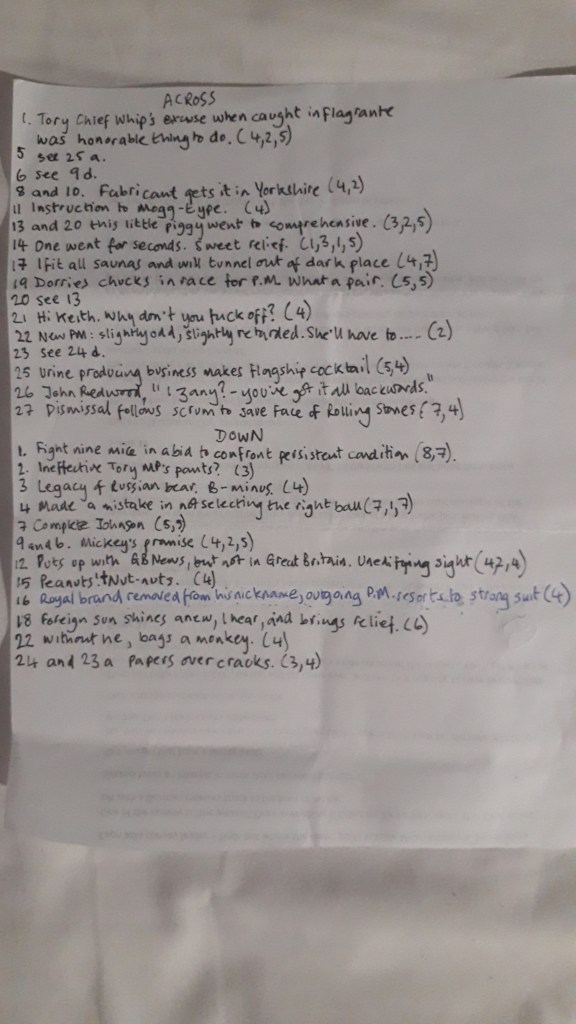 ACROSS
1. Tory Chief Whip's excuse when caught in flagrante
was honorable thing to do. (4,2,5)
5 see 25 a.
6 see 9 d.
8 and 10. Fabricant gets it in Yorkshire (4,2)
11 Instruction to Mogg-type. (4)
13 and 20 this little piggy went to comprehensive. (3,2,5)
14 One went for seconds. Sweet relief. (1,3,1,5)
17 I fit all saunas and will tunnel out of dark place (4,7)
19 Dorries chucks in race for P.M. What a pair. (5,5)
20 see 13
21 Hi Keith. Why don't you fuck off? (4)
22 New PM: slightly odd, slightly retarded. She'll have to.... (2)
23 see 24 d.
25 Urine producing business makes flagship cocktail (5,4)
26 John Redwood, "1 3 any? - you've got it all backwards."
27 Dismissal follows scrum to save face of Rolling Stones? (7,4)
DOWN
1. Fight nine mice in a bid to confront persistent condition (8,7).
2. Ineffective Tory MP's pants? (3)
3 Legacy of Russian bear. B-minus. (4)
4 Made a mistake in not selecting the right ball (7,1,7)
7 Complete Johnson (5,5)
9 and 6. Mickey's promise (4,2,5)
12 Puts up with GB News, but not in Great Britain. Unedifying sight (4,2,4)
15 Peanuts! Nut-nuts. (4)
16 Royal brand removed from his nickname, outgoing P.M. resorts to strong suit (4)
18 Foreign sun shines anew, I hear, and brings relief. (6)
22 without he, bags a monkey. (4)
24 and 23 a Papers over cracks. (3,4)